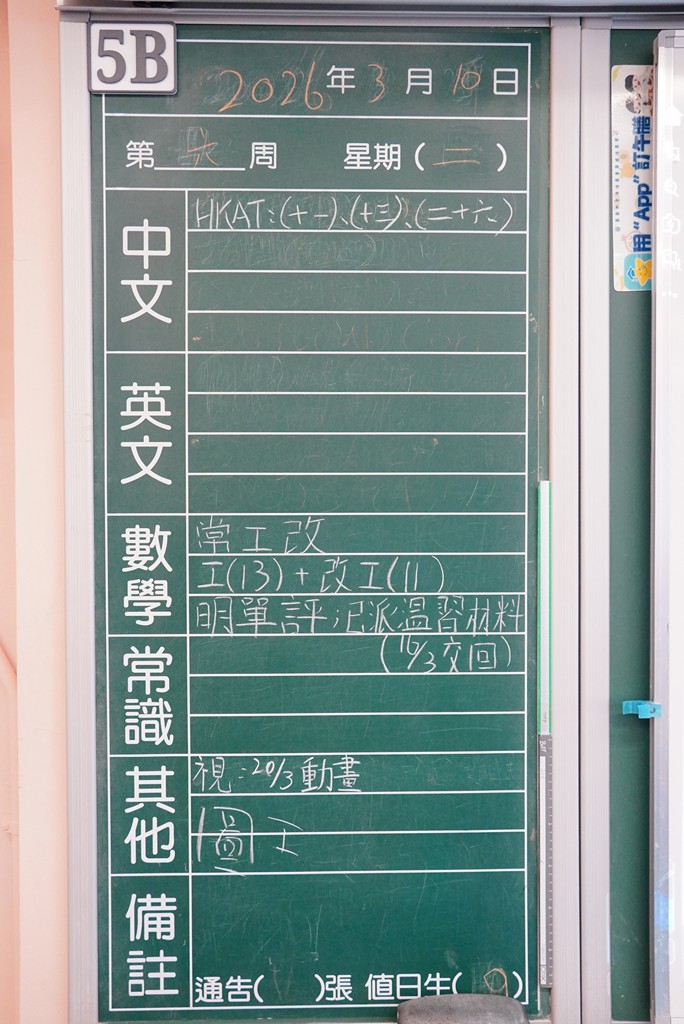 5B
2026年3月10日
第 六 周 星期(二)
中文
HKAT:(十一)、(十三)、(二十六)
英文
數學
常工改
工(13)+改工(11)
明單評 记派溫習材料
(16/3交回)
常識
其他
視:20/3動畫
圖工
備註
通告( )張 值日生( )
用“App”訂午膳